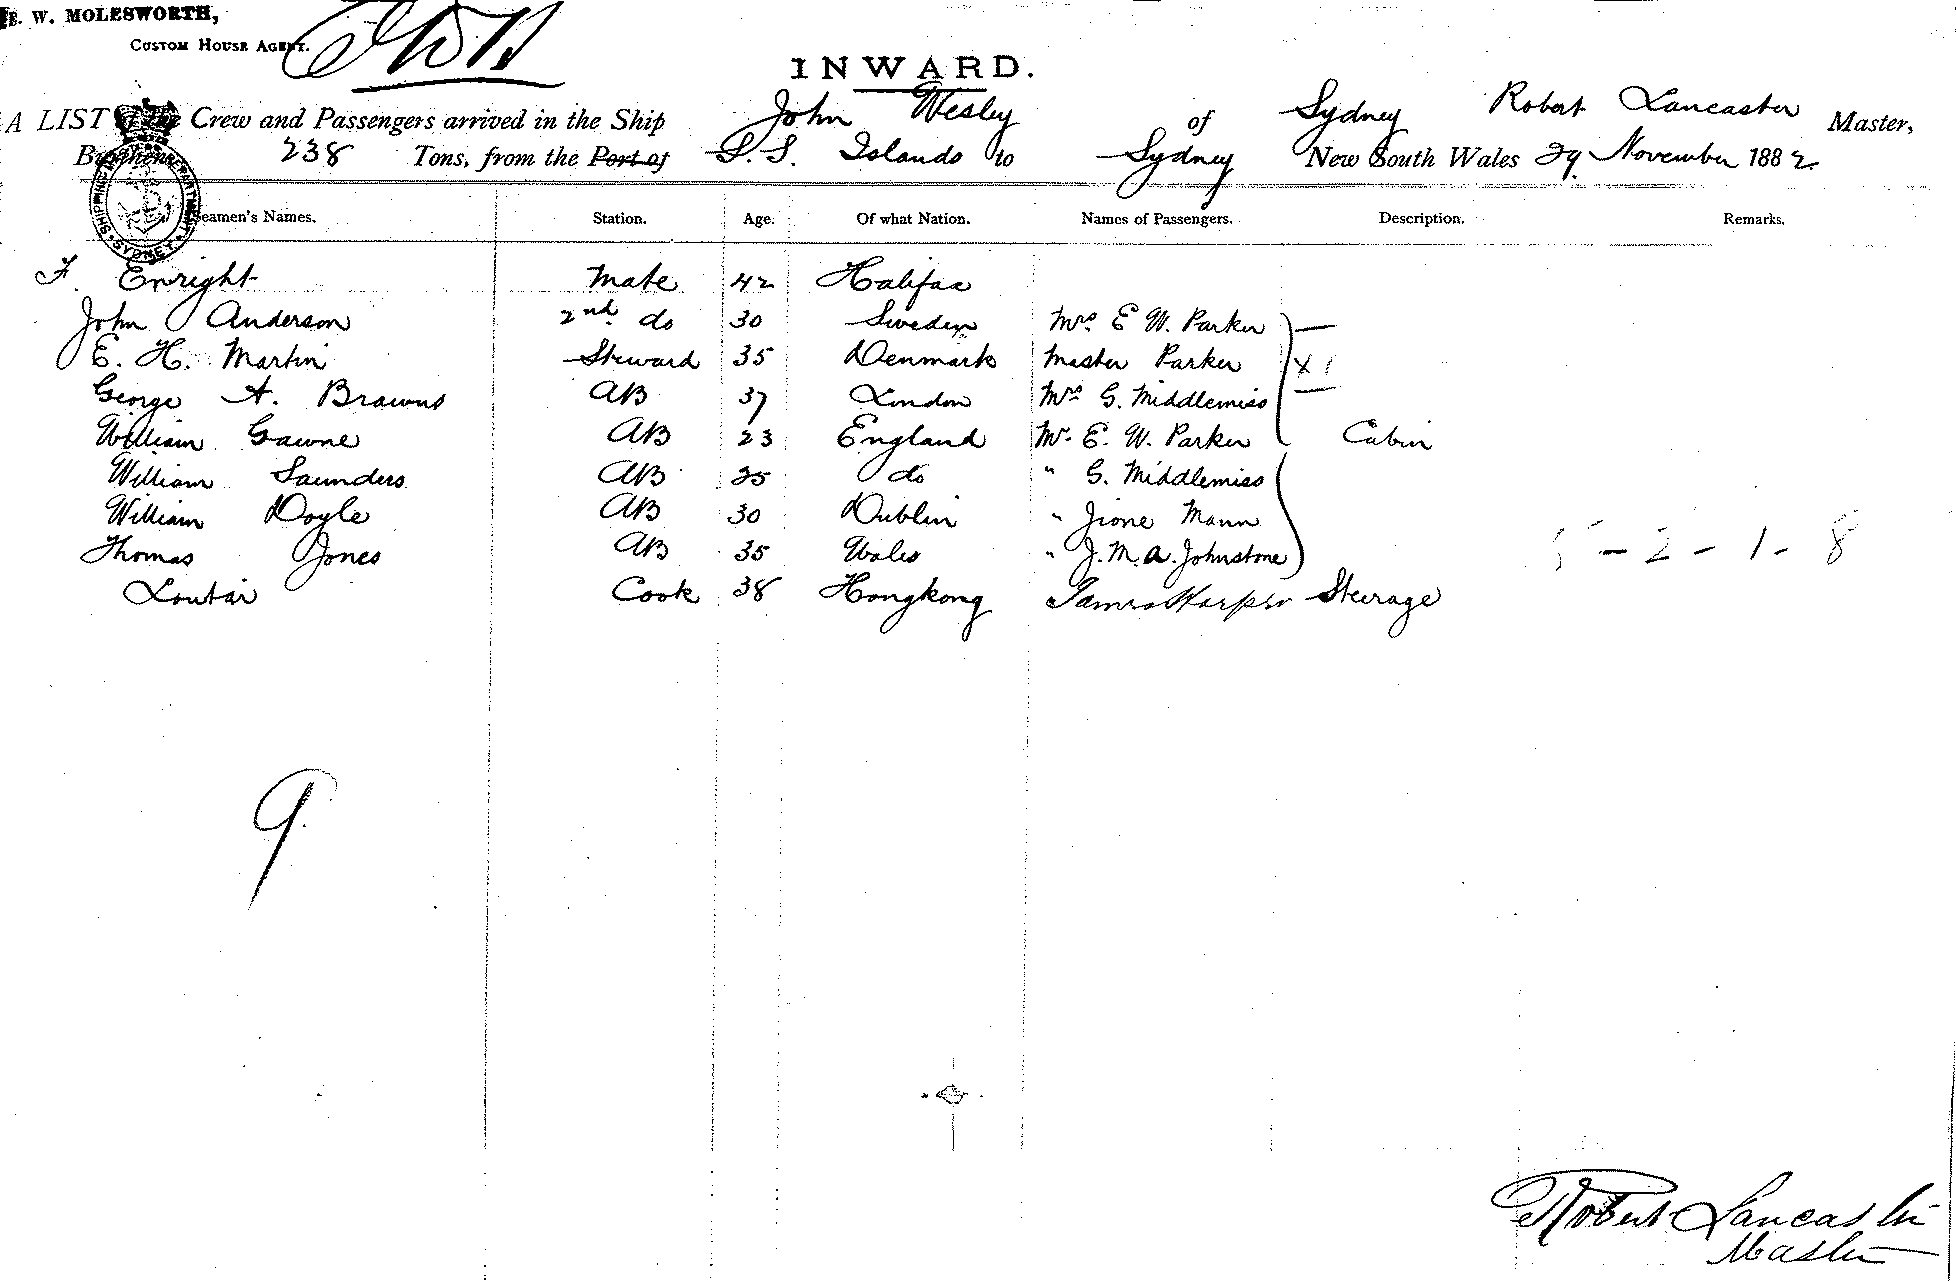 E. W. MOLESWORTH,
CUSTOM HOUSE AGENT.
INWARD.
A LIST of the Crew and Passengers arrived in the Ship John Wesley of Sydney Robert Lancaster Master,
Burthen 238 Tons, from the Port of S. S. Islands to Sydney New South Wales 29 November 1882
Seamen's Names. Station. Age. Of what Nation. Names of Passengers. Description. Remarks.
F. Enright Mate 42 Halifax
John Anderson 2nd do 30 Sweden Mrs E W. Parker
E. H. Martin Steward 35 Denmark Master Parker X 1
George A. Browns AB 37 London Mrs G. Middlemiss
William Gawne AB 23 England Mr. E. W. Parker Cabin
William Saunders AB 25 do " G. Middlemiss
William Doyle AB 30 Dublin " Jione Mann
Thomas Jones AB 35 Wales " J. M. A. Johnstone 5 - 2 - 1 - 8
Loutar Cook 38 Hongkong James Harper Steerage
9.
Robert Lancaster
Master
SHIPPING MASTER'S DEPARTMENT SYDNEY